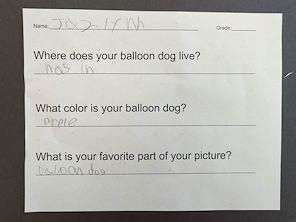 Name: Jazlynn Grade:
Where does your balloon dog live?
What color is your balloon dog?
Prple
What is your favorite part of your picture?
balloon dog